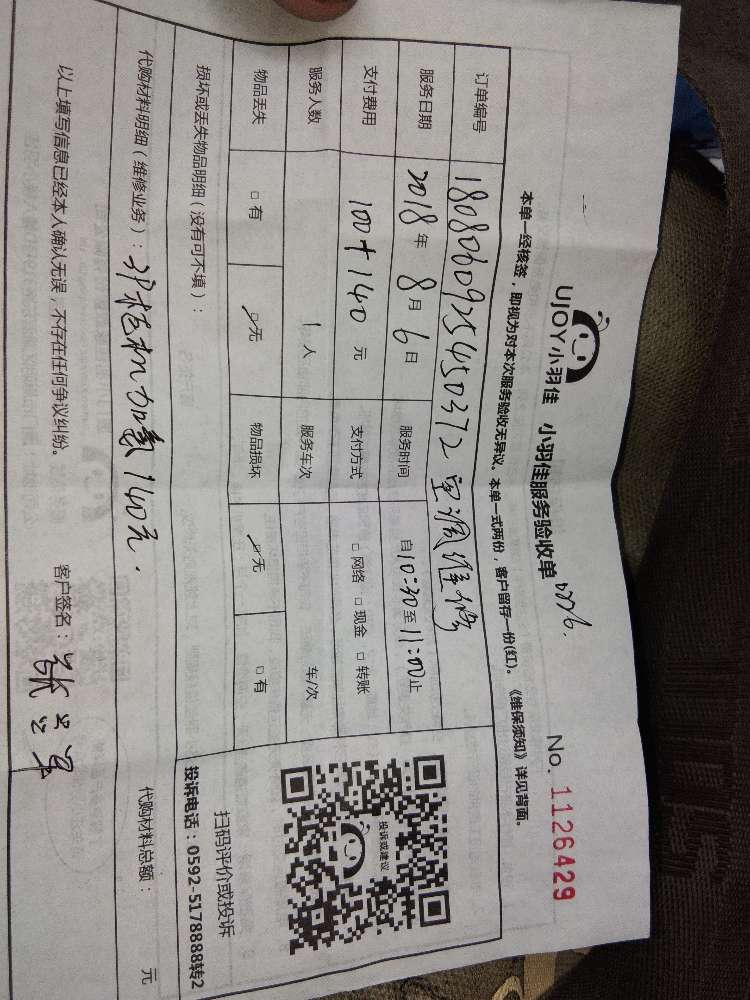 UJOY小羽佳 小羽佳服务验收单
No. 1126429
本单一经核签，即视为对本次服务验收无异议。本单一式两份，客户留存一份(红)。《维保须知》详见背面。
订单编号 1808060925450372 空调维修
服务日期 2018年8月6日 服务时间 自10:30至11:00止
支付费用 100+140元 支付方式 □网络 □现金 □转账
服务人数 1人 服务车次 车/次
物品丢失 □有 ☑无 物品损坏 ☑无 □有
损坏或丢失物品明细（没有可不填）：
代购材料明细（维修业务）：3P柜机加氟140元. 代购材料总额： 元
以上填写信息已经本人确认无误，不存在任何争议纠纷。 客户签名：
投诉或建议
扫码评价或投诉
投诉电话：0592-5178888转2